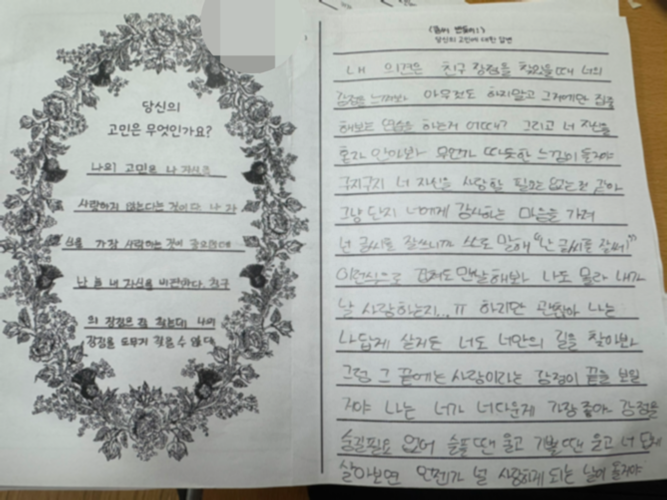 당신의
고민은 무엇인가요?
나의 고민은 나 자신을
사랑하지 않는다는 것이다. 나 자
신을 가장 사랑하는 것이 중요한데
난 늘 내 자신을 비판한다. 친구
의 장점은 잘 찾는데 나의
장점을 도무지 찾을 수 없다
당신의 고민에 대한 답변
내 의견은 친구 장점을 찾았을 때 너의
감정을 느껴봐 아무것도 하지말고 그거에만 집중
해보는 연습을 하는거 어때? 그리고 너 자신을
혼자 안아봐 무언가 따뜻한 느낌이 들거야
구지구지 너 자신을 사랑할 필요는 없는 것 같아
그냥 단지 너에게 감사하는 마음을 가려
넌 글씨를 잘쓰니까 쓰고 말해 "난 글씨를 잘써!"
이런식으로 말해봐 나도 몰라 내가
날 사랑하는지...ㅠ 하지만 괜찮아 나는
나답게 살거든 너도 너만의 길을 찾아봐
그럼 그 끝에는 사랑이라는 감정이 끝을 보일
거야 나는 너가 너다운게 가장 좋아. 감정을
숨길필요 없어 슬플 땐 울고 기쁠 땐 웃고 너 답게
살아보면 언젠가 널 사랑하게 되는 날이 올거야